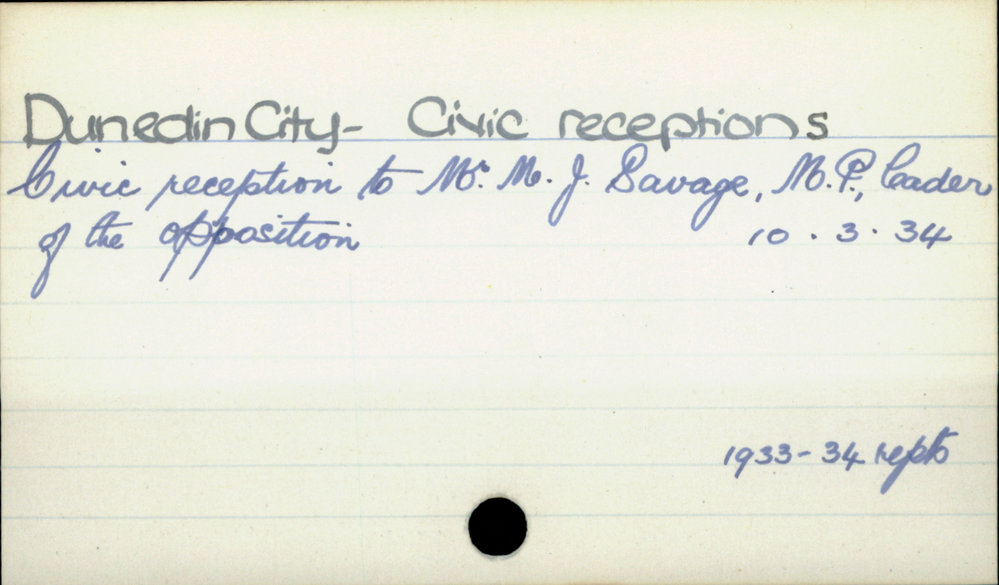 Dunedin City- Civic receptions
Civic reception to Mr. M. J. Savage, M.P., Leader
of the opposition 10.3.34
1933-34 repts